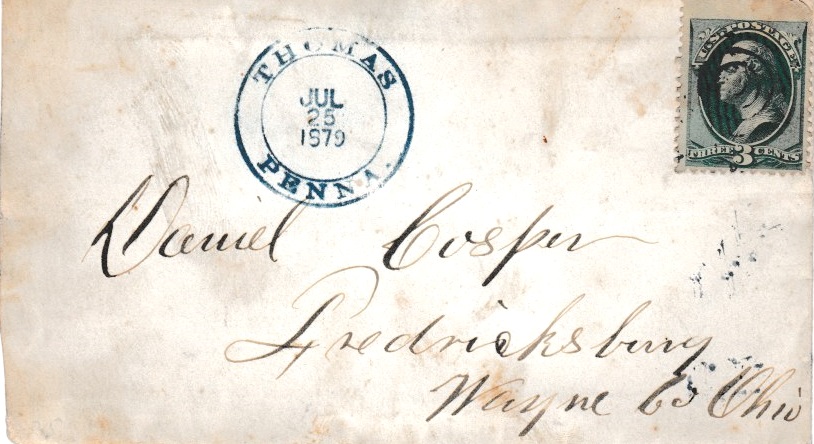 THOMAS
JUL
25
1879
PENNA.
U.S. POSTAGE
THREE 3 CENTS
Daniel Cosper
Fredricksburg
Wayne Co Ohio